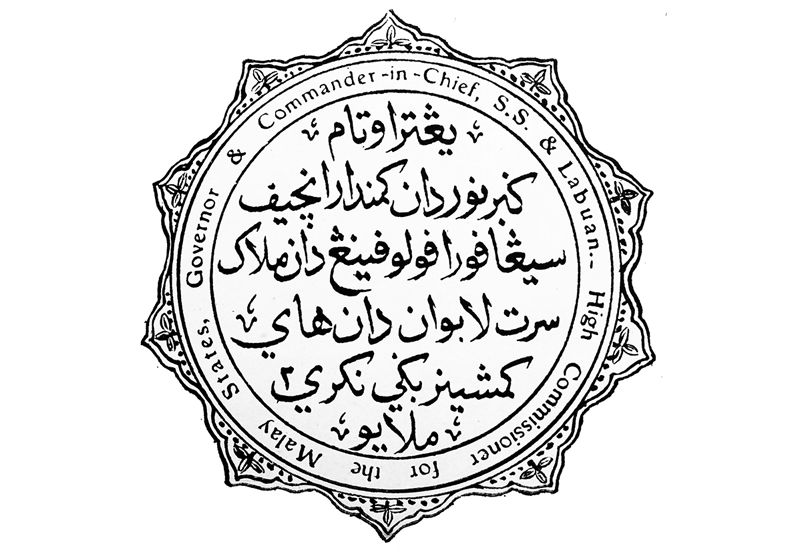 Governor & Commander-in-Chief, S.S. & Labuan.- High Commissioner for the Malay States,
يڠتراوتام
ݢبرنور دان کمندار انچيف
سيڠافورا فولو فينڠ دان ملاک
سرت لابوان دان هاي
کمشينر بݢي نݢري٢
ملايو